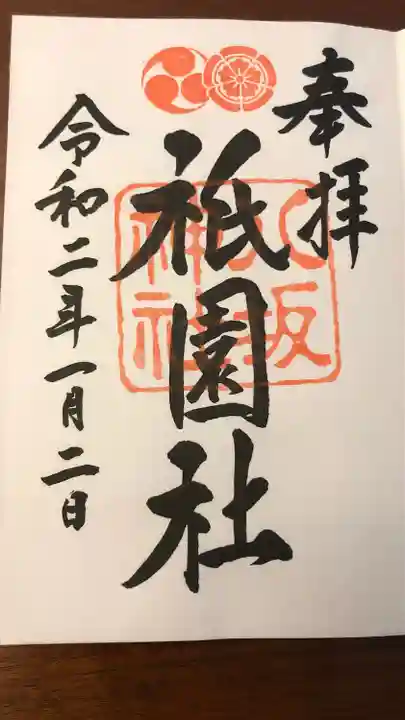 奉拝
祇園社
八坂神社
令和二年一月二日